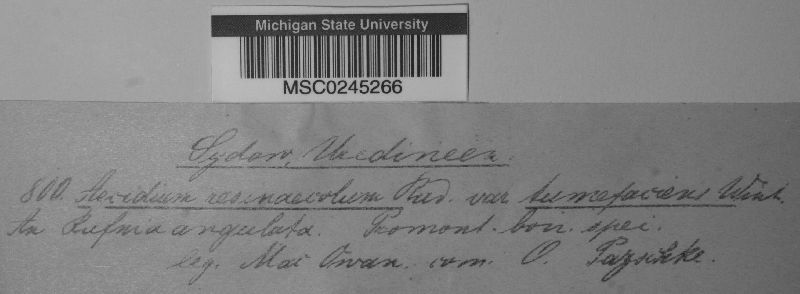 Michigan State University
MSC0245266
Sydow, Uredineen.
800. Aecidium resinaecolum Rud. var. tumefaciens Wint.
An Rufnia angulata. Promont. bon. spei.
leg. Mac Owan. com. O. Pazschke.